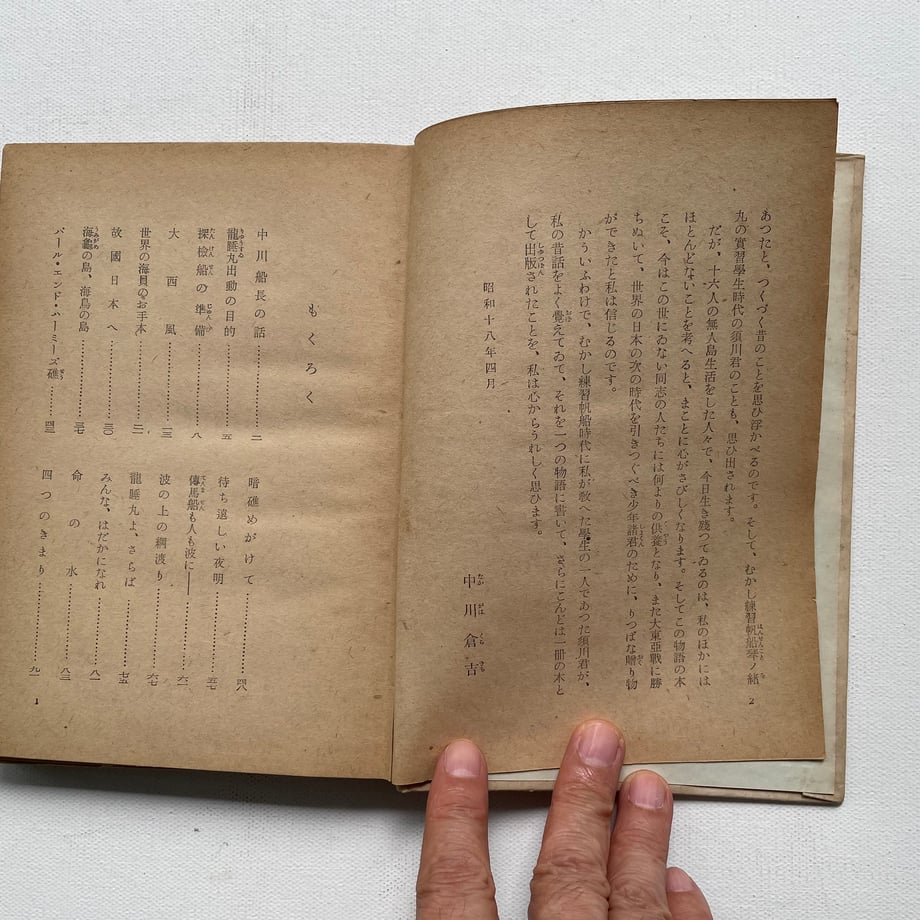 あつたと、つくづく昔のことを思ひ浮かべるのです。そして、むかし練習帆船琴ノ緒
丸の實習學生時代の須川君のことも、思ひ出されます。
だが、十六人の無人島生活をした人々で、今日生き殘つてゐるのは、私のほかには
ほとんどないことを考へると、まことに心がさびしくなります。そしてこの物語の本
こそ、今はこの世にゐない同志の人たちには何よりの供養となり、また大東亞戰に勝
ちぬいて、世界の日本の次の時代を引きつぐべき少年諸君のために、りつぱな贈り物
ができたと私は信じるのです。
かういふわけで、むかし練習帆船時代に私が敎へた學生の一人であつた須川君が、
私の昔話をよく覺えてゐて、それを一つの物語に書いて、さらにこんどは一冊の本と
して出版されたことを、私は心からうれしく思ひます。
昭和十八年四月
中川倉吉
2
もくろく
中川船長の話…………二
龍睡丸出動の目的…………五
探檢船の準備…………八
大西風…………一三
世界の海員のお手本…………二一
故國日本へ…………三〇
海龜の島、海鳥の島…………三七
パール・エンド・ハーミーズ礁…………四三
暗礁めがけて…………四八
待ち遠しい夜明…………五七
傳馬船も人も波に――…………六一
波の上の綱渡り…………六七
龍睡丸よ、さらば…………七五
みんな、はだかになれ…………八一
命の水…………八三
四つのきまり…………九一
1